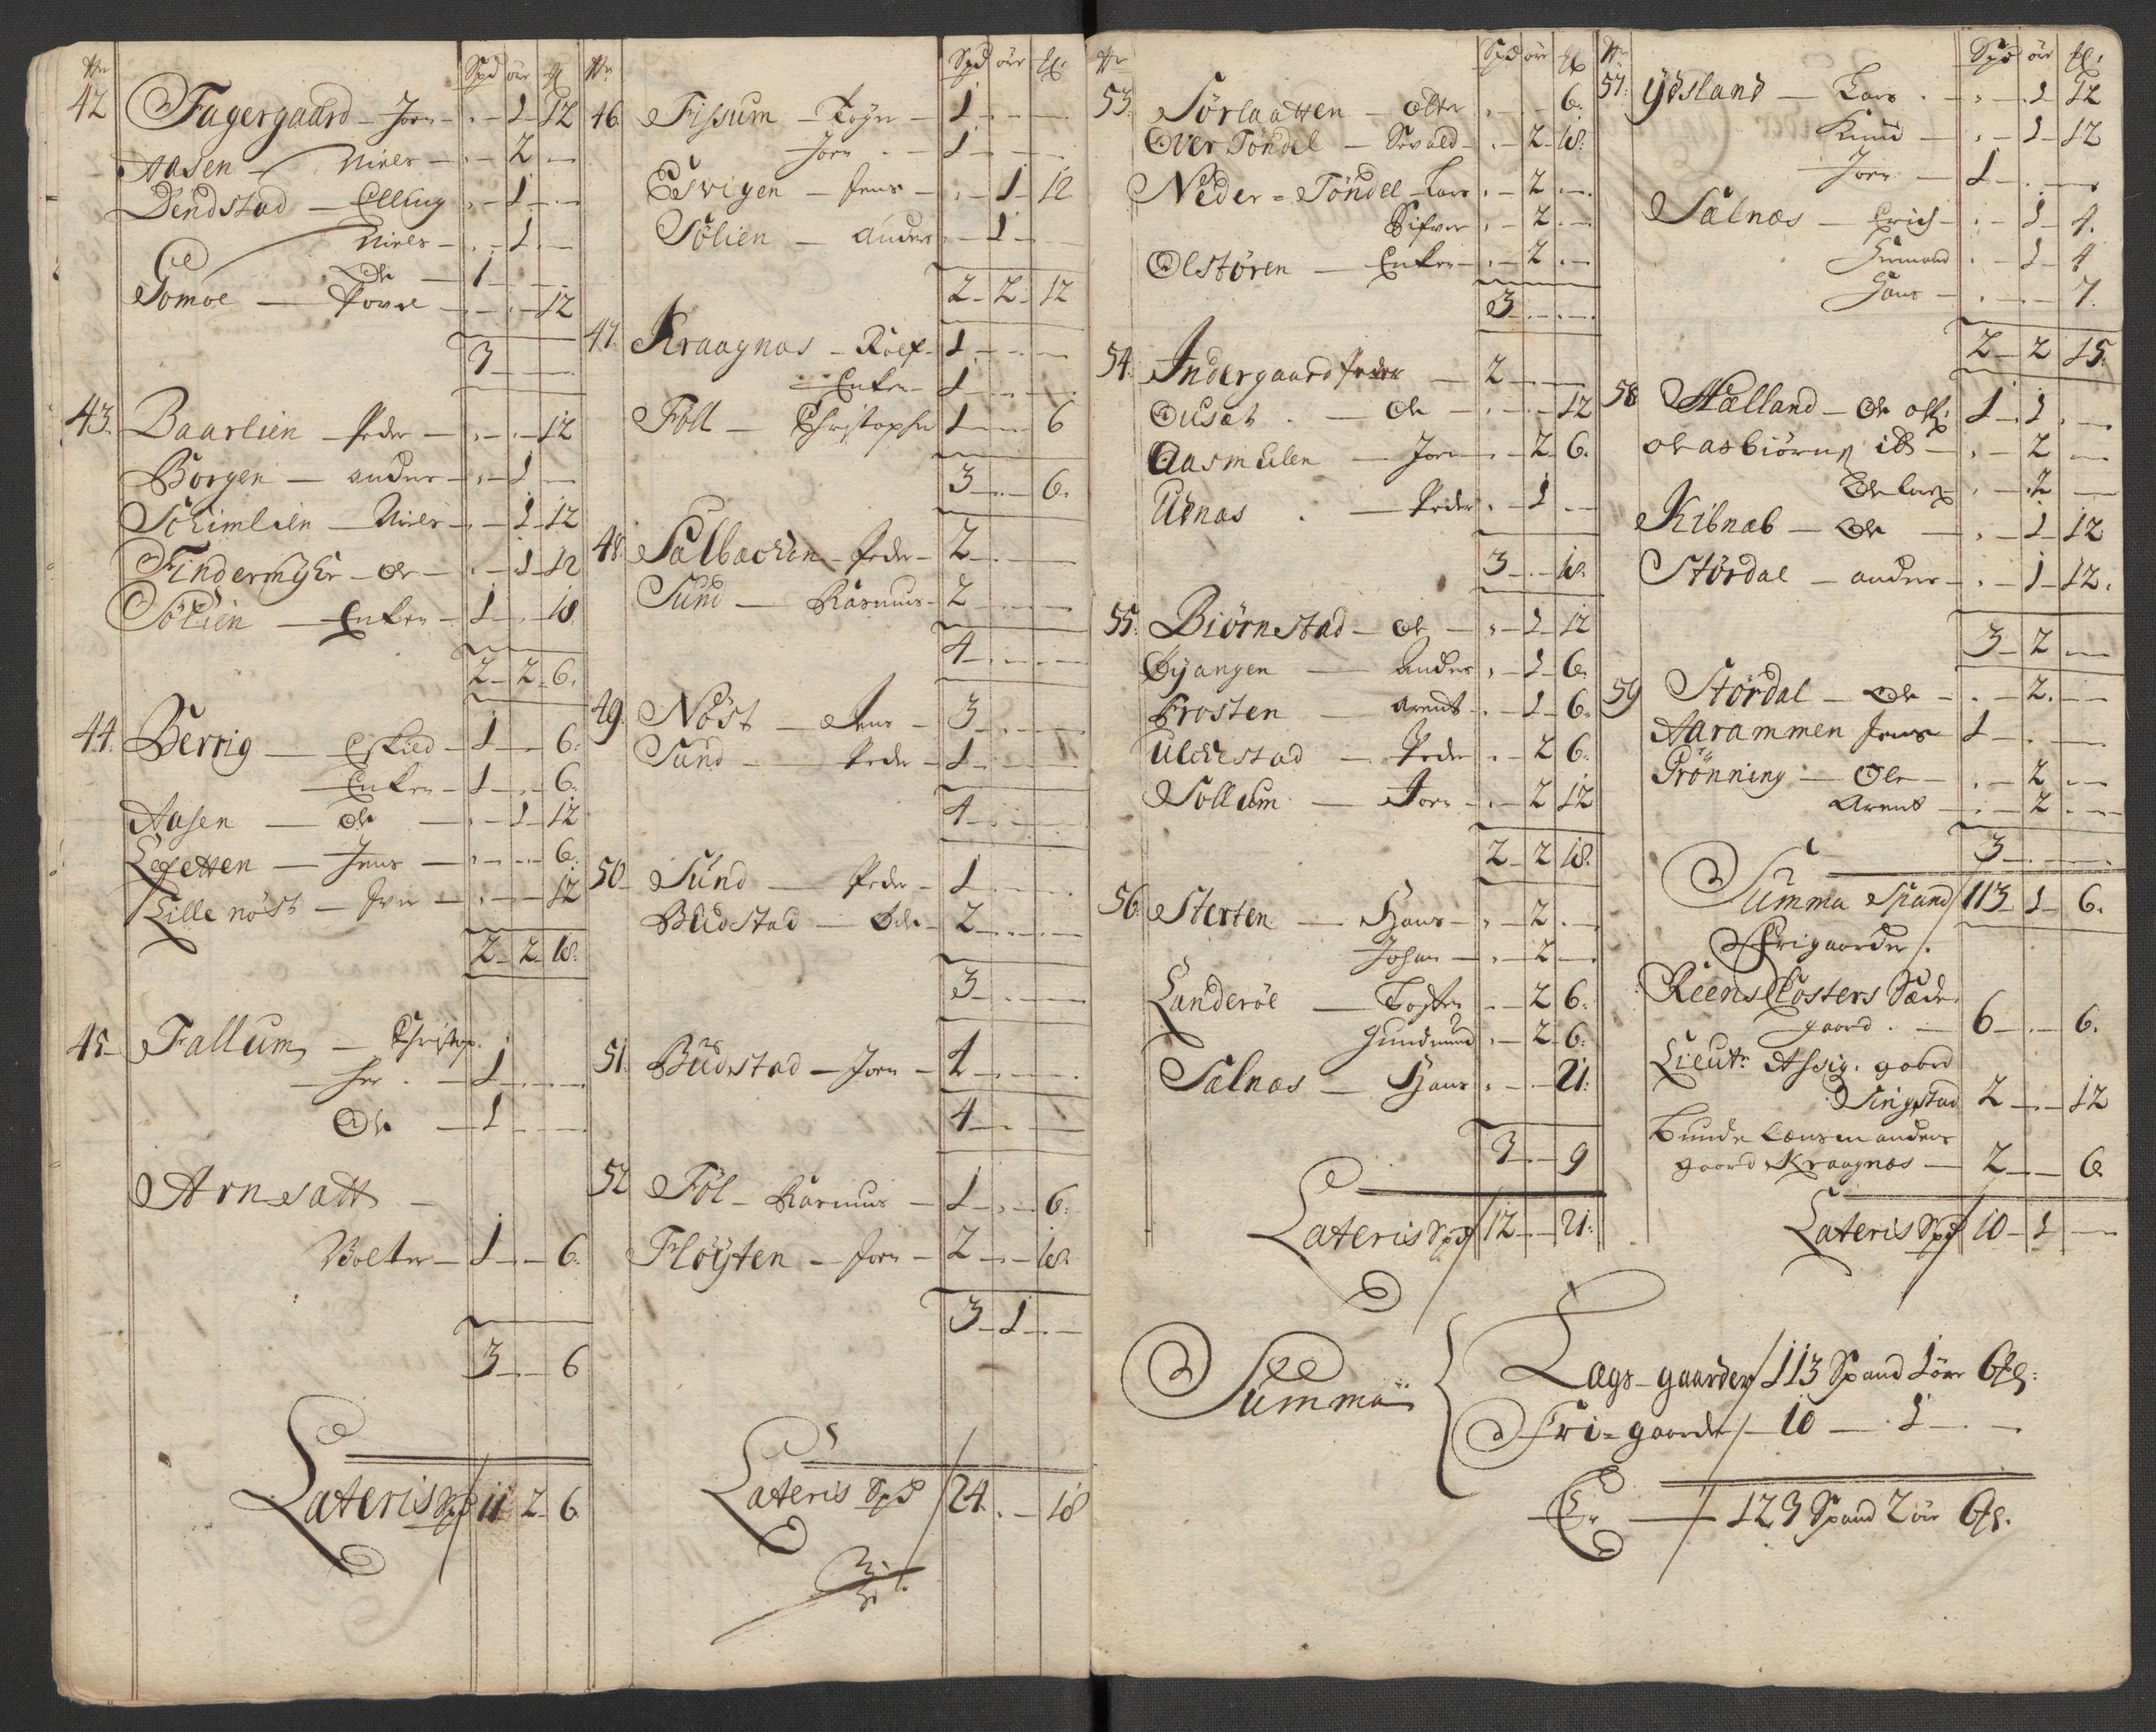 No Spd ör #
42 Fagergaard - Joen - . - 1 - 12
Aasen - Niels - . - 2 -
Dendstad - Elling . - 1 - . -
Niels - . - 1 -
Ole - 1 - . -
Gomoe - Povel - . - . - 12
3 - . -
43. Baarlien - Peder - . - . - 12
Borgen - anders - . - 1 -
Schimlien - Niels - . - 1 - 12
Findermyhr - Ole - . - 1 - 12
Sölien - Enken - 1 - . - 18
2 - 2 - 6.
44. Berrig - Eskild - 1 - . - 6.
Enken - 1 - . - 6.
Aasen - Ole - . - 1 - 12
Lefetten - Jens - . - . - 6.
Lille nöst - Iver - . - . - 12
2 - 2 - 18.
45 - Fallum - Christop:
her - 1 - . -
Ole - 1 - . -
Arnsatt -
Volter - 1 - . - 6.
3 - . - 6
Lateris Spd / 11 - 2 - 6
No Spd ör #
46 Fissum - - 1 - . -
Joen - 1 - . -
Eswigen - Jens - . - 1 - 12
Sölien - anders - . - 1 -
2 - 2 - 12
47. Kraagnæs - Rolf - 1 - . -
Enken - 1 - . -
Föll - Christopher 1 - . - 6
3 - . - 6.
48. Salbachen - Peder - 2 - . -
Sund - Rasmus - 2 - . -
4 - . -
49. Nöst - Jens - 3 - . -
Sund - Peder - 1 - . -
4 - . -
50 - Sund - Peder - 1 - . -
Budstad - Ole - 2 - . -
3 - . -
51. Budstad - Joen - 4 - . -
4 - . -
52 Föl - Rasmus - 1 - . - 6.
Flöyten - Joen - 2 - . - 18.
3 - 1 - . -
Lateris Spd / 24. . - 18
No Spd ör #
53. Sörlaatten - olter . - . 6.
Over Töndel - Sivald - . - 2 - 18.
Neder = Töndel - Lars . - 2 - . -
Sifver . - 2 - . -
Olstören - Enken - . - 2 . -
3 - . -
54. Indergaard Peder - 2 - . -
Ousat . - Ole - . - . - 12
Aasmulen - Joen - . - 2 - 6.
Udnæs . - Peder . - 1 . -
3 - . - 18.
55. Biörnstad - Ole - . - 1 - 12
Oyangen - anders . - 1 - 6.
Frosten - arent - . - 1 - 6.
Ulchestad - Peder . - 2 6.
Sollum - Joen - . - 2 12
2 - 2 18.
56. Sterten - Hans - . - 2 . -
Johan - . - 2 . -
Landeröe - Tosten . - 2 6.
Gundmund . - 2 6.
Salnæs - Hans . - . - 21.
3 - . - 9
Lateris Spd / 12 - . - 21.
No Spd ör #.
57. Ydsland - Lars . - . - 1 - 12
Knud - . - 1 - 12
Joen - 1 - . -
Salnæs - Erich - . - 1 - 4.
. - 1 - 4
Hans - . - . - 7.
2 - 2 15.
58. Halland - Ole ols: 1 - 1 . -
ole asbiörns ib - . - 2 . -
Ole lars: . - 2 -
Kibnæb - Ole - . - 1 - 12
Stördal - anders - . - 1 - 12.
3 - 2 . -
59 Stördal - Ole - . - 2. -
Aarammen Jens 1 - . -
Prönning - Ole - . - 2 . -
Arent - . - 2 . -
3 - . -
Summa Spand / 113 - 1 - 6.
Frigaarder /.
Reens Closters Sæde
gaard . - 6 - . - 6.
Lieutn: Assig. gaard
Singstad 2 - . - 12
Bunde Lænsmandens
gaard Kraagnæs - 2 - . - 6
Lateris Spd / 10 - 1 . -
Summa
Lægs - gaarder / 113 Spand 1 ör 6 #:
Fri = gaarder / - 10 - . 1 - . -
Er - / - 123 Spand 2 ör 6 #.